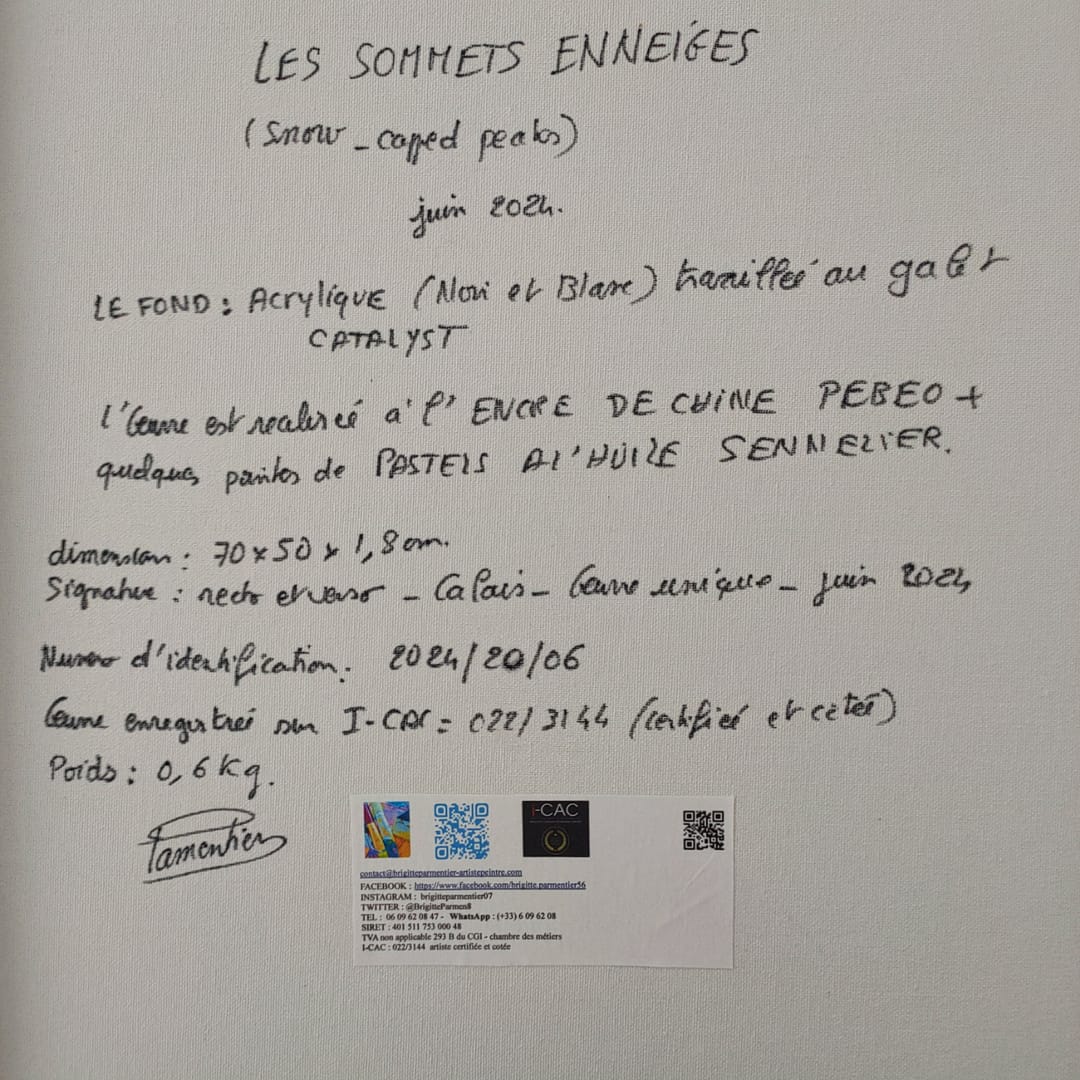 LES SOMMETS ENNEIGES
(Snow-caped peaks)
juin 2024.
LE FOND : Acrylique (Noir et Blanc) travaillée au galet
CATALYST
l'œuvre est realisée à l'ENCRE DE CHINE PEBEO +
quelques pointes de PASTELS A L'HUILE SENNELIER.
dimension : 70 x 50 x 1,8 cm.
Signature : recto et verso - Calais - œuvre unique - juin 2024
Numero d'identification. 2024/20/06
œuvre enregistreé sur I-CAC = 022/3144 (certifieé et coteé)
Poids : 0,6 kg.
Parmentier
i-CAC
contact@brigitteparmentier-artistepeintre.com
FACEBOOK : https://www.facebook.com/brigitte.parmentier56
INSTAGRAM : brigitteparmentier07
TWITTER : @BrigitteParmen8
TEL : 06 09 62 08 47 - WhatsApp : (+33) 6 09 62 08
SIRET : 401 511 753 000 48
TVA non applicable 293 B du CGI - chambre des métiers
I-CAC : 022/3144 artiste certifiée et cotée